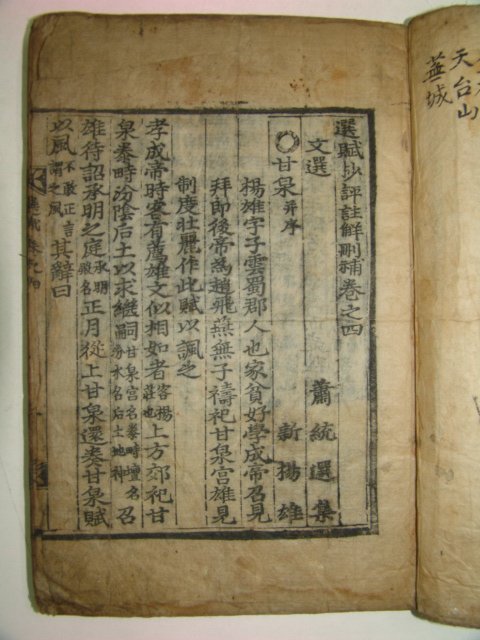 天台山
蕪城
選賦抄評註解刪補卷之四
文選 蕭統選集
甘泉并序 新揚雄
揚雄字子雲蜀郡人也家貧好學成帝召見
拜郎後帝為趙飛燕無子禱祀甘泉宮雄見
制度壯麗作此賦以諷之
孝成帝時客有薦雄文似相如者客楊莊也上方郊祀甘
泉泰畤汾陰后土以求繼嗣甘泉宮名泰畤壇名汾水名后土地神召
雄待詔承明之庭承明殿名正月從上甘泉還奏甘泉賦
以風不敢正言謂之風其辭曰